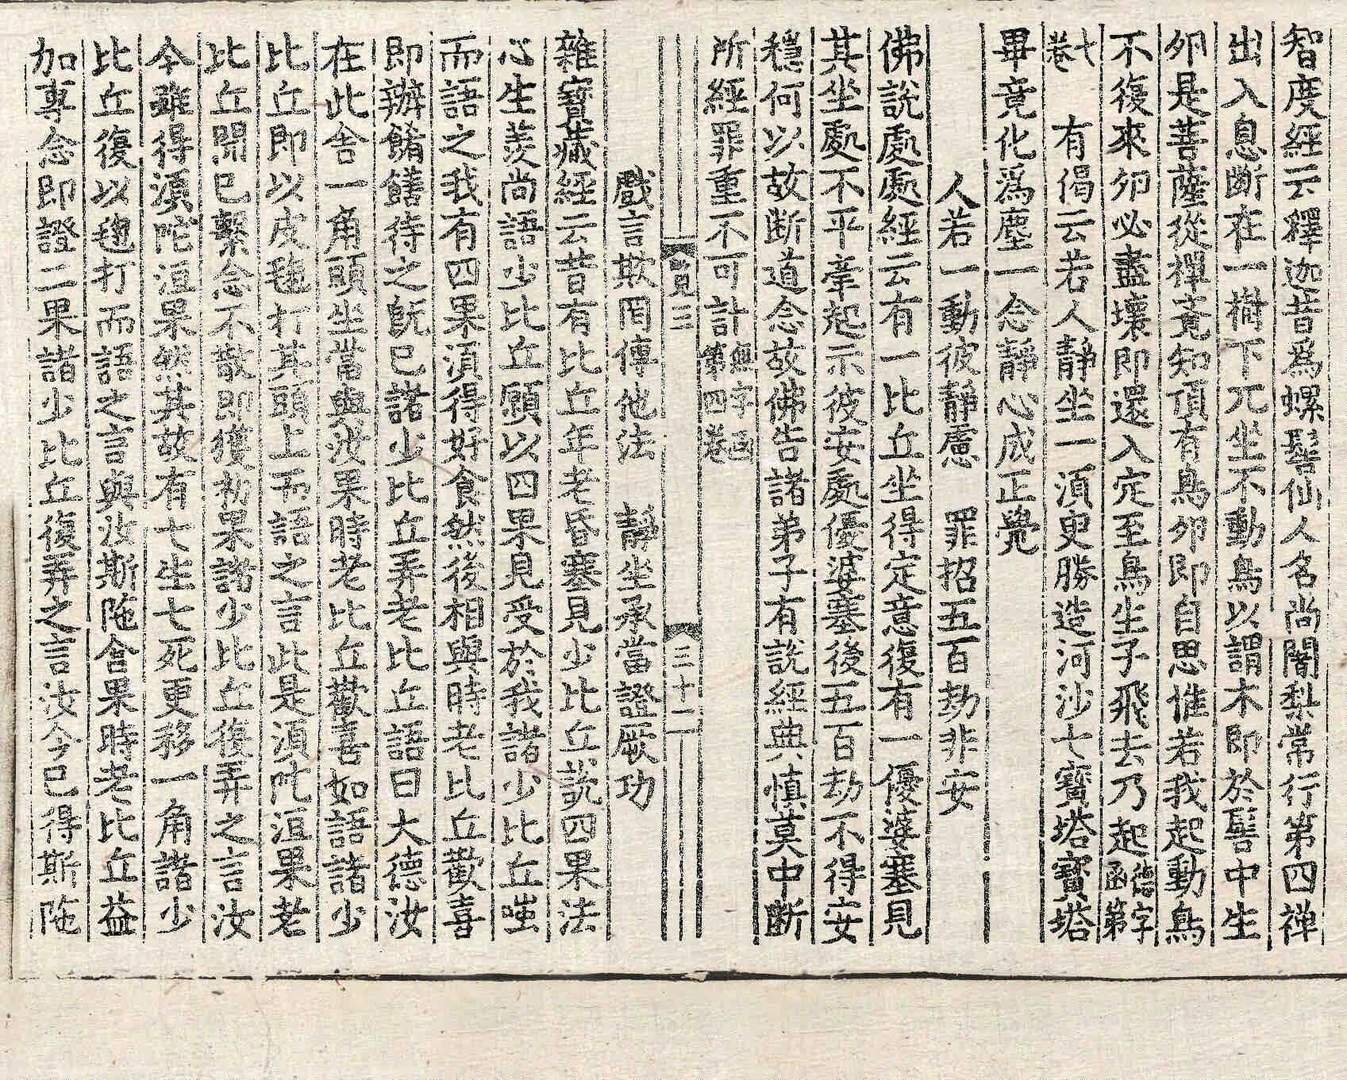 智度經云釋迦昔爲螺髻仙人名尚闍梨常行第四禅
出入息断在一樹下兀坐不動鳥以謂木即於髻中生
夘是菩薩從禪竟知頂有鳥夘即自思惟若我起動鳥
不復來夘必盡壞即還入定至鳥生子飛去乃起德字函第
七卷 有偈云若人静坐一湏㬰勝造河沙七寶塔寶塔
畢竟化爲塵一念静心成正覺
人若一動彼静慮 罪招五百劫非安
佛說處處經云有一比丘坐得定意復有一優婆塞見
其坐處不平牽起示彼安處優婆塞後五百劫不得安
穩何以故断道念故佛告諸弟子有說經典慎莫中断
所經罪重不可計無字函第四卷
見三 三十二
戲言欺罔傳他法 静坐承當證厥功
雜寶藏經云昔有比丘年老昏塞見少比丘說四果法
心生羨尚語少比丘願以四果見受於我諸少比丘嗤
而語之我有四果湏得好食然後相與時老比丘歡喜
即辦餚饍待之旣已諸少比丘弄老比丘語曰大德汝
在此舍一角頭坐當與汝果時老比丘歡喜如語諸少
比丘即以皮毱打其頭上而語之言此是湏陁洹果老
比丘聞已繫念不散即獲初果諸少比丘復弄之言汝
今雖得湏陀洹果然其故有七生七死更移一角諸少
比丘復以毱打而語之言與汝斯陁含果時老比丘益
加專念即證二果諸少比丘復弄之言汝今已得斯陁